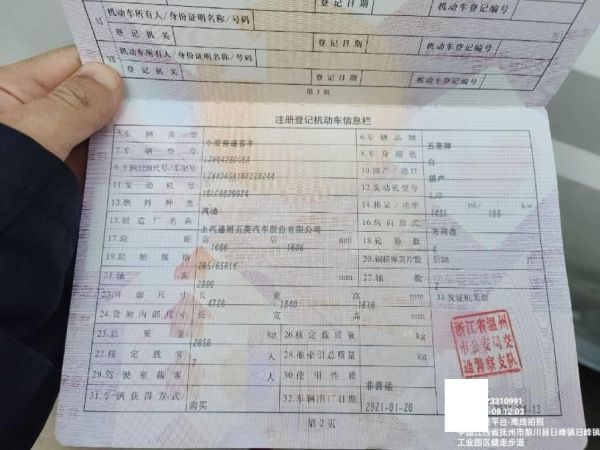 VI 机动车所有人/身份证明名称/号码
登记机关 登记日期 机动车登记编号
VII 机动车所有人/身份证明名称/号码
登记机关 登记日期 机动车登记编号
第1页
注册登记机动车信息栏
5.车辆类型 小型普通客车 6.车辆品牌 五菱牌
7.车辆型号 8.车身颜色 白
9.车辆识别代号/车架号 10.国产/进口 国产
11.发动机号 12.发动机型号
13.燃料种类 汽油 14.排量/功率 1451 ml/ kw
15.制造厂名称 上汽通用五菱汽车股份有限公司 16.转向形式 方向盘
17.轮距 mm 18.轮胎数 4
19.轮胎规格 205/65R16 20.钢板弹簧片数 后轴
21.轴距 2800 mm 22.轴数 2
23.外廓尺寸 长 4720 宽 1840 高 1810 mm 33.发证机关章
24.货厢内部尺寸 长 宽 高 mm
浙江省温州市公安局交通警察支队
25.总质量 kg 26.核定载质量 kg
27.核定载客 7 人 28.准牵引总质量 kg
29.驾驶室载客 人 30.使用性质 非营运
31.车辆获得方式 购买 32.车辆出厂日期 2021-01-20
第2页
23310991
-08 12:03
平台-离线拍照
中国江西省抚州市黎川县日峰镇日峰镇
工业园区健走步道